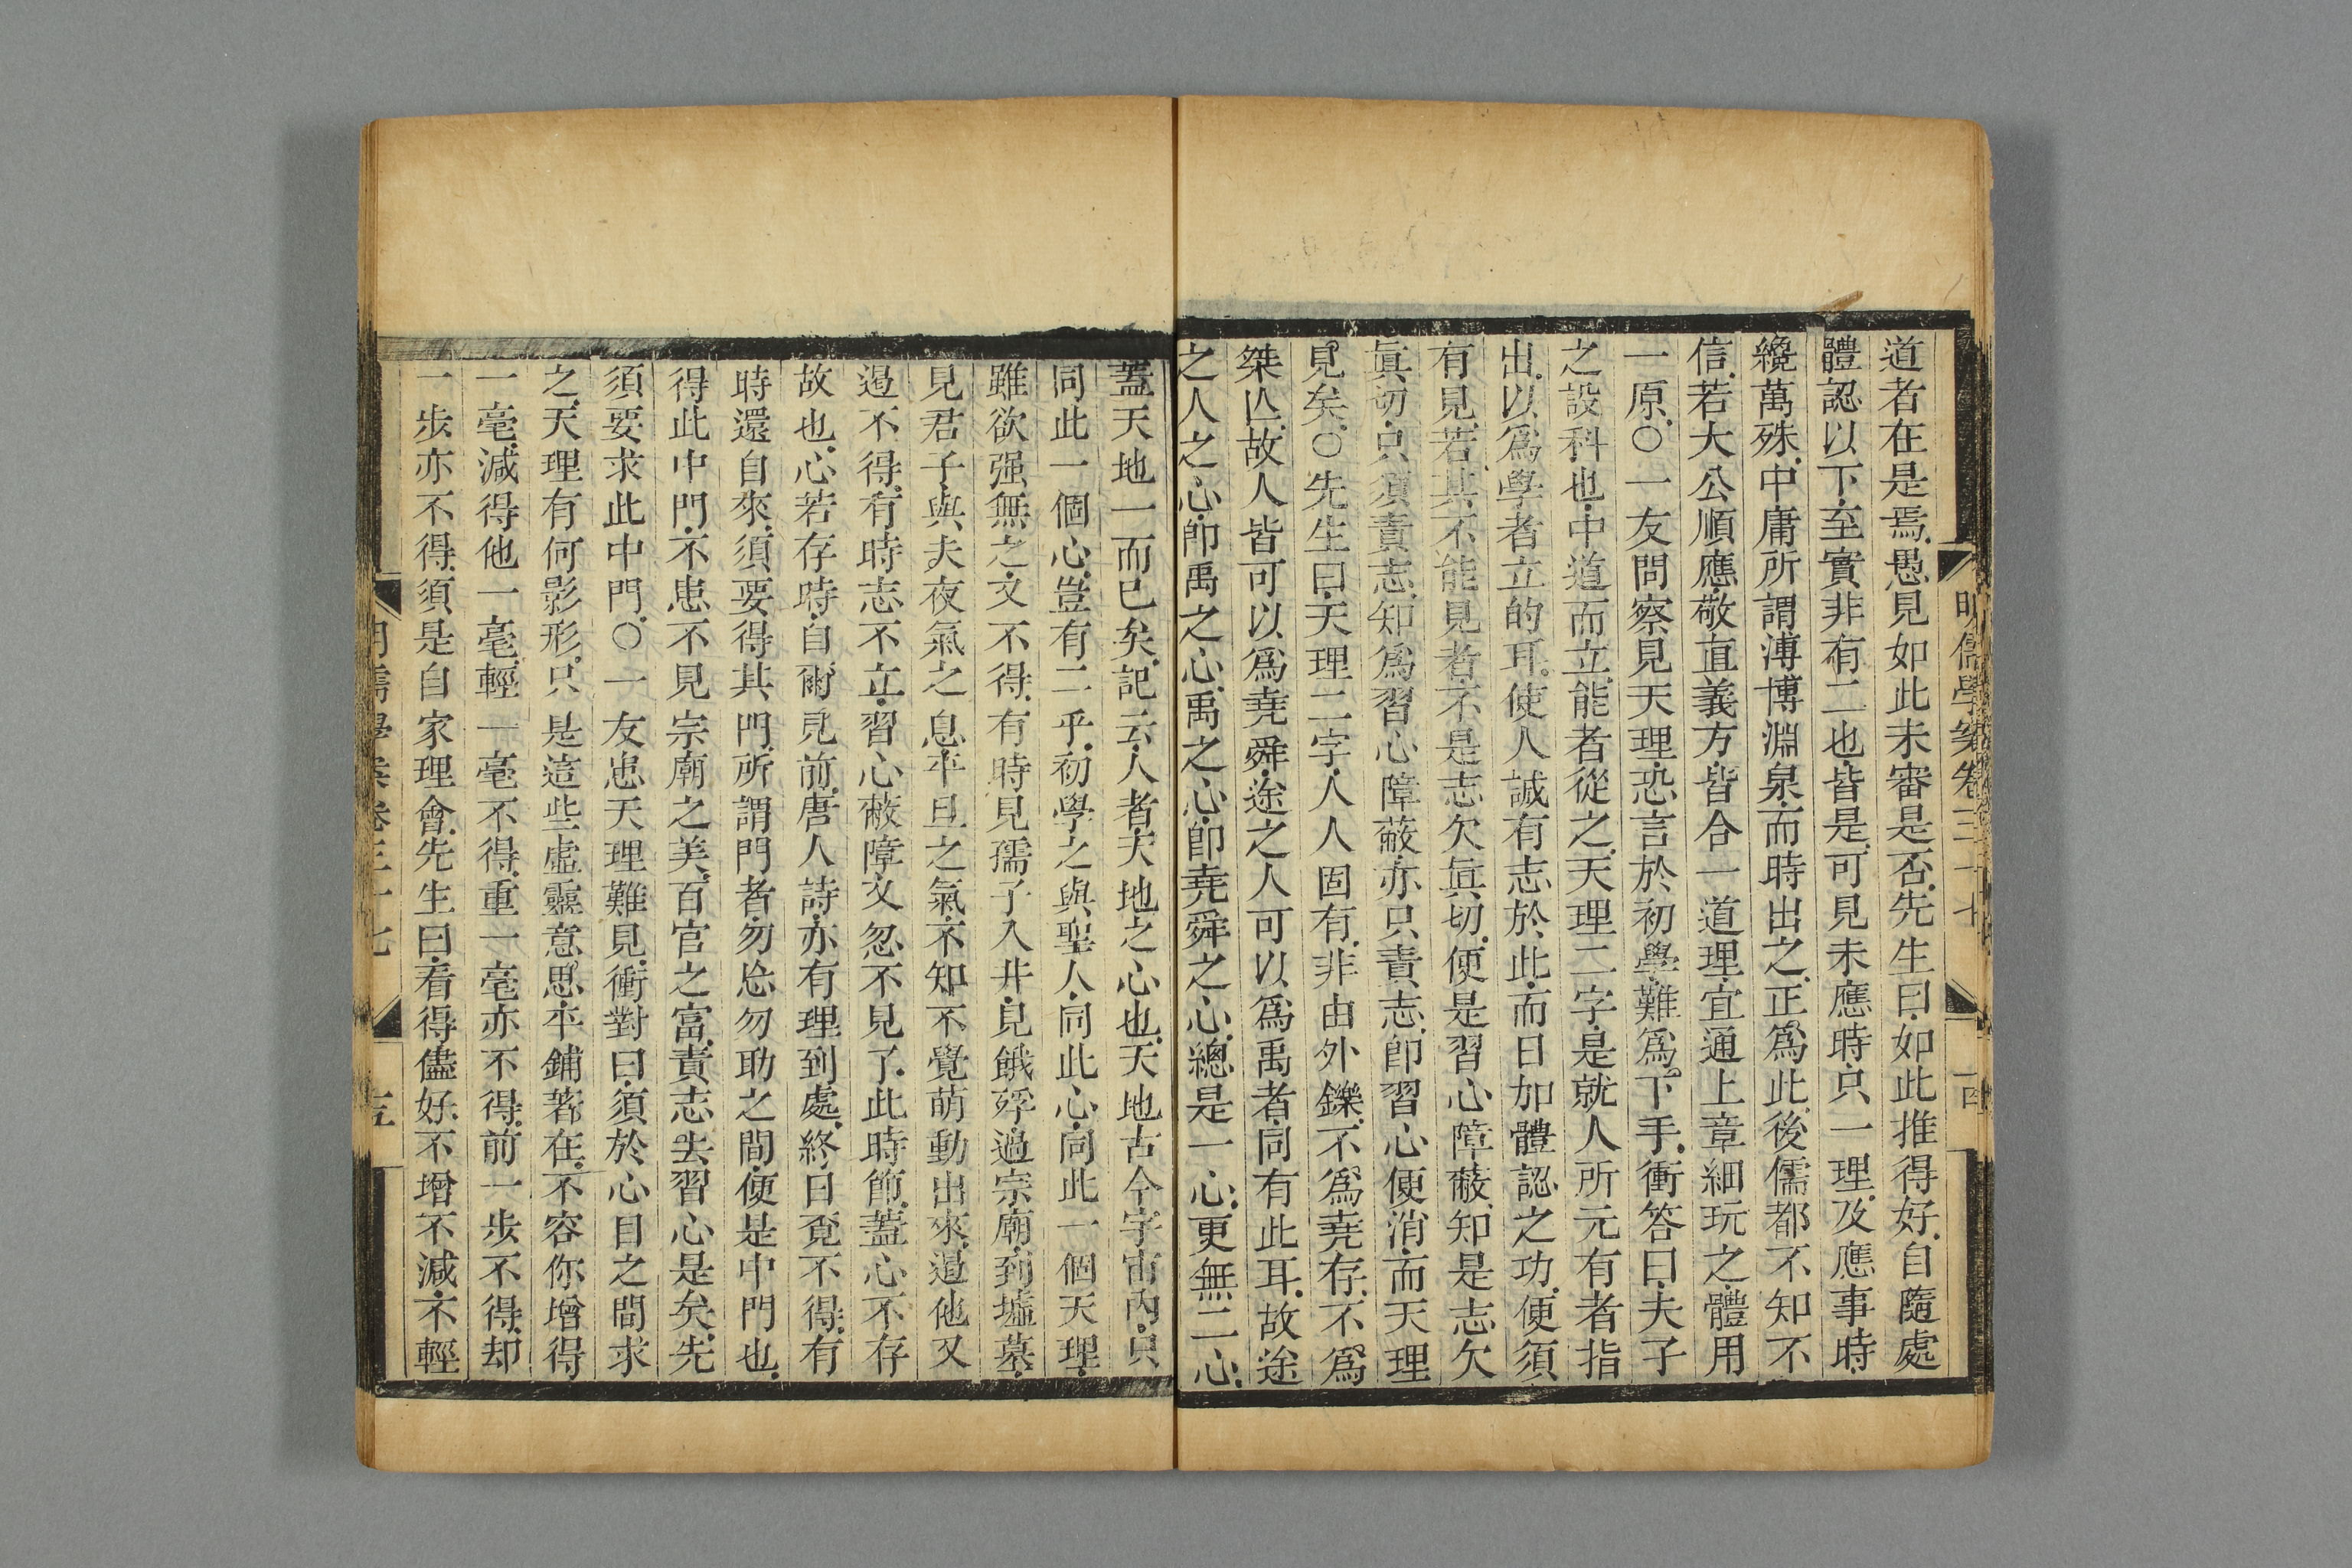 道者在是焉愚見如此未審是否先生曰如此推得好自隨處
體認以下至實非有二也皆是可見未應時只一理及應事時
纔萬殊中庸所謂溥博淵泉而時出之正爲此後儒都不知不
信若大公順應敬直義方皆合一道理宜通上章細玩之體用
一原○一友問察見天理恐言於初學難爲下手衝答曰夫子
之設科也中道而立能者從之天理二字是就人所元有者指
出以爲學者立的耳使人誠有志於此而日加體認之功便須
有見若其不能見者不是志欠眞切便是習心障蔽知是志欠
眞切只須責志知爲習心障蔽亦只責志卽習心便消而天理
見矣○先生曰天理二字人人固有非由外鑠不爲堯存不爲
桀亾故人皆可以爲堯舜途之人可以爲禹者同有此耳故途
之人之心卽禹之心禹之心卽堯舜之心總是一心更無二心
蓋天地一而已矣記云人者天地之心也天地古今宇宙內只
同此一個心豈有二乎初學之與聖人同此心同此一個天理
雖欲强無之又不得有時見孺子入井見餓殍過宗廟到墟墓
見君子與夫夜氣之息平旦之氣不知不覺萌動出來遏他又
遏不得有時志不立習心蔽障又忽不見了此時節蓋心不存
故也心若存時自爾見前唐人詩亦有理到處終日覔不得有
時還自來須要得其門所謂門者勿忘勿助之間便是中門也
得此中門不患不見宗廟之美百官之富責志去習心是矣先
須要求此中門○一友患天理難見衝對曰須於心目之間求
之天理有何影形只是這些虛靈意思平鋪著在不容你增得
一毫減得他一毫輕一毫不得重一毫亦不得前一步不得却
一步亦不得須是自家理會先生曰看得儘好不增不減不輕
明儒學案卷三十七